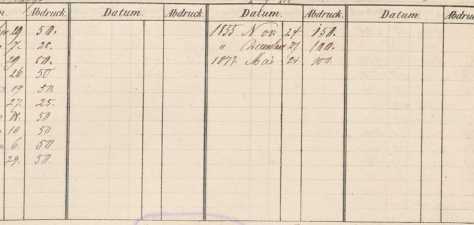 Abdruck. Datum. Abdruck. Datum. Abdruck. Datum. Abdruck.
29. 50. 1855 Nov. 27. 150.
7. 25. " December 27 100.
29 50. 24 100
26 50
19 50.
27. 25.
18. 50
10 50
6. 50
29. 50.